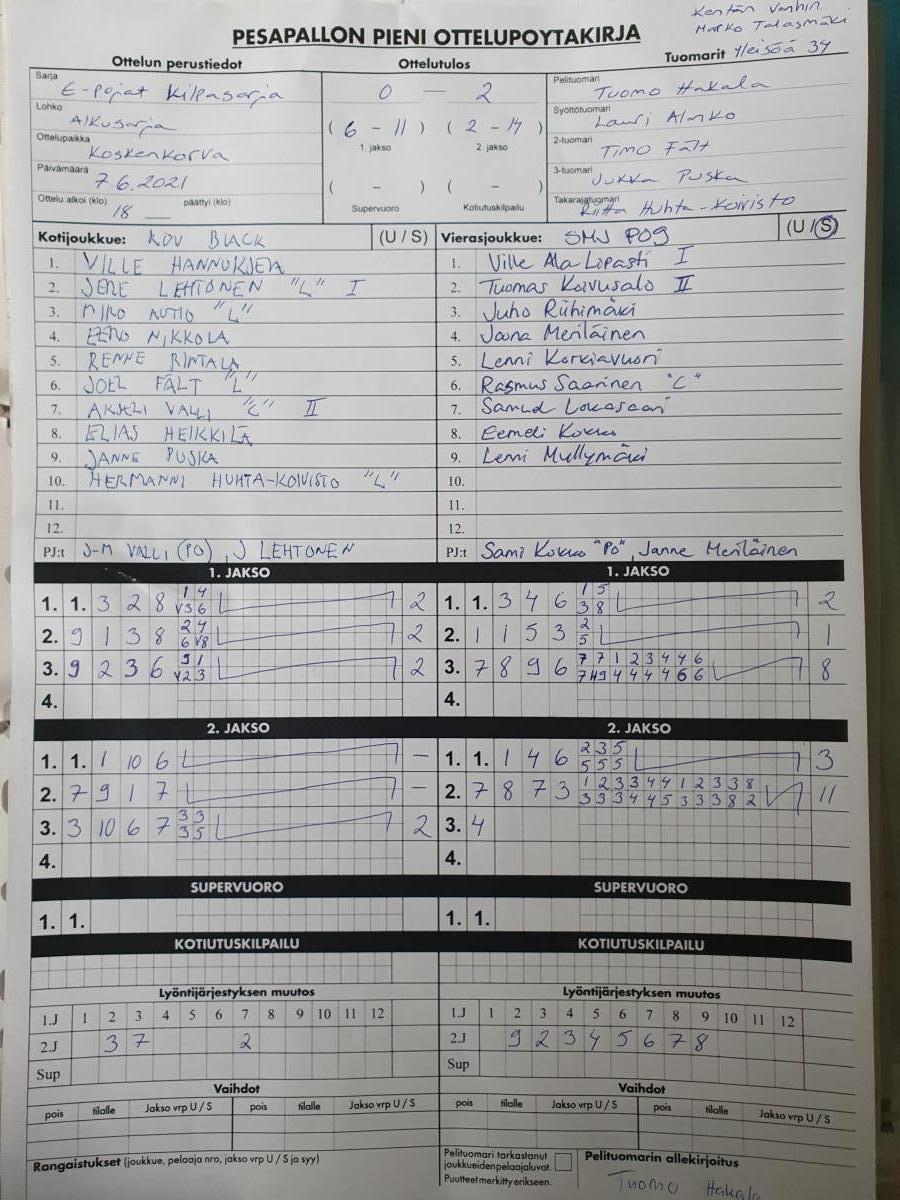 Kentän Vanhin
Marko Talasmäki
PESAPALLON PIENI OTTELUPOYTAKIRJA
Ottelun perustiedot
Ottelutulos
Tuomarit Yleisöä 34
Sarja E-Pojat Kilpasarja
0 — 2
Pelituomari Tuomo Hakala
Lohko Alkusarja
(6 - 11) (2 - 14)
1. jakso 2. jakso
Syöttötuomari Lauri Alanko
Ottelupaikka Koskenkorva
2-tuomari Timo Fält
Päivämäärä 7.6.2021
( - ) ( - )
Supervuoro Kotiutuskilpailu
3-tuomari Jukka Puska
Ottelu alkoi (klo) 18 — päättyi (klo)
Takarajatuomari Riitta Huhta-Koivisto
Kotijoukkue: KOV BLACK (U / S)
1. VILLE HANNUKSELA
2. JERE LEHTONEN "L" I
3. MIRO AUTIO "L"
4. EERO NIKKOLA
5. RENNE RINTALA
6. JOEL FÄLT "L"
7. AKSELI VALLI "C" II
8. ELIAS HEIKKILÄ
9. JANNE PUSKA
10. HERMANNI HUHTA-KOIVISTO "L"
11.
12.
PJ:t J-M VALLI (PO), J LEHTONEN
Vierasjoukkue: SMJ P09 (U / S)
1. Ville Ala-Lipasti I
2. Tuomas Koivusalo II
3. Juho Riihimäki
4. Joona Meriläinen
5. Lenni Korkiavuori
6. Rasmus Saarinen "C"
7. Samuel Lokasaari
8. Eemeli Kokko
9. Lenni Myllymäki
10.
11.
12.
PJ:t Sami Kokko "PO", Janne Meriläinen
1. JAKSO
1. 1. 3 2 8 1 4 2
V3 6
2. 9 1 3 8 2 4 2
6 V8
3. 9 2 3 6 9 1 2
V2 3
4.
1. JAKSO
1. 1. 3 4 6 1 5 2
3 8
2. 1 1 5 3 2 1
5
3. 7 8 9 6 7 7 1 2 3 4 4 6 8
7 H9 4 4 4 4 6 6
4.
2. JAKSO
1. 1. 1 10 6 —
2. 7 9 1 7 —
3. 3 10 6 7 3 3 2
3 5
4.
2. JAKSO
1. 1. 1 4 6 2 3 5 3
5 5 5
2. 7 8 7 3 1 2 3 3 4 4 1 2 3 3 8 11
3 3 3 4 4 5 3 3 3 8 2
3. 4
4.
SUPERVUORO
1. 1.
SUPERVUORO
1. 1.
KOTIUTUSKILPAILU
KOTIUTUSKILPAILU
Lyöntijärjestyksen muutos
1.J 1 2 3 4 5 6 7 8 9 10 11 12
2.J 3 7 2
Sup
Lyöntijärjestyksen muutos
1.J 1 2 3 4 5 6 7 8 9 10 11 12
2.J 9 2 3 4 5 6 7 8
Sup
Vaihdot
pois tilalle Jakso vrp U / S pois tilalle Jakso vrp U / S
Vaihdot
pois tilalle Jakso vrp U / S pois tilalle Jakso vrp U / S
Rangaistukset (joukkue, pelaaja nro, jakso vrp U / S ja syy)
Pelituomari tarkastanut
joukkueidenpelaajaluvat.
Puutteet merkitty erikseen.
Pelituomarin allekirjoitus
Tuomo Hakala